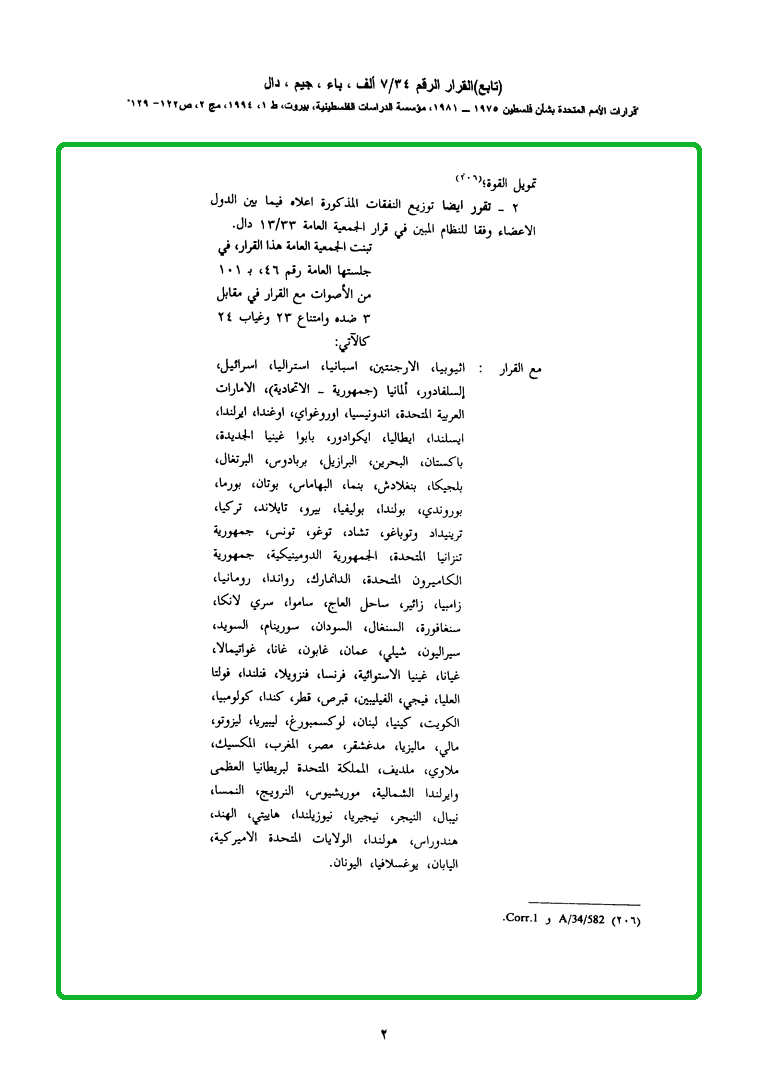 (تابع)القرار الرقم ٧/٣٤ ألف ، باء ، جيم ، دال
"قرارات الأمم المتحدة بشأن فلسطين ١٩٧٥ ــ ١٩٨١، مؤسسة الدراسات الفلسطينية، بيروت، ط ١، ١٩٩٤، مج ٢، ص١٢٢- ١٢٩"
تمويل القوة؛(٢٠٦)
٢ ـ تقرر ايضا توزيع النفقات المذكورة اعلاه فيما بين الدول
الاعضاء وفقا للنظام المبين في قرار الجمعية العامة ١٣/٣٣ دال.
تبنت الجمعية العامة هذا القرار، في
جلستها العامة رقم ٤٦، بـ ١٠١
من الأصوات مع القرار في مقابل
٣ ضده وامتناع ٢٣ وغياب ٢٤
كالآتي:
مع القرار : اثيوبيا، الارجنتين، اسبانيا، استراليا، اسرائيل،
إلسلفادور، ألمانيا (جمهورية ـ الاتحادية)، الامارات
العربية المتحدة، اندونيسيا، اوروغواي، اوغندا، ايرلندا،
ايسلندا، ايطاليا، ايكوادور، بابوا غينيا الجديدة،
باكستان، البحرين، البرازيل، بربادوس، البرتغال،
بلجيكا، بنغلادش، بنما، البهاماس، بوتان، بورما،
بوروندي، بولندا، بوليفيا، بيرو، تايلاند، تركيا،
ترينيداد وتوباغو، تشاد، توغو، تونس، جمهورية
تنزانيا المتحدة، الجمهورية الدومينيكية، جمهورية
الكاميرون المتحدة، الدانمارك، رواندا، رومانيا،
زامبيا، زائير، ساحل العاج، ساموا، سري لانكا،
سنغافورة، السنغال، السودان، سورينام، السويد،
سيراليون، شيلي، عمان، غابون، غانا، غواتيمالا،
غيانا، غينيا الاستوائية، فرنسا، فنزويلا، فنلندا، فولتا
العليا، فيجي، الفيليبين، قبرص، قطر، كندا، كولومبيا،
الكويت، كينيا، لبنان، لوكسمبورغ، ليبيريا، ليزوتو،
مالي، ماليزيا، مدغشقر، مصر، المغرب، المكسيك،
ملاوي، ملديف، المملكة المتحدة لبريطانيا العظمى
وايرلندا الشمالية، موريشيوس، النرويج، النمسا،
نيبال، النيجر، نيجيريا، نيوزيلندا، هاييتي، الهند،
هندوراس، هولندا، الولايات المتحدة الاميركية،
اليابان، يوغسلافيا، اليونان.
(٢٠٦) A/34/582 و Corr.1.
٢